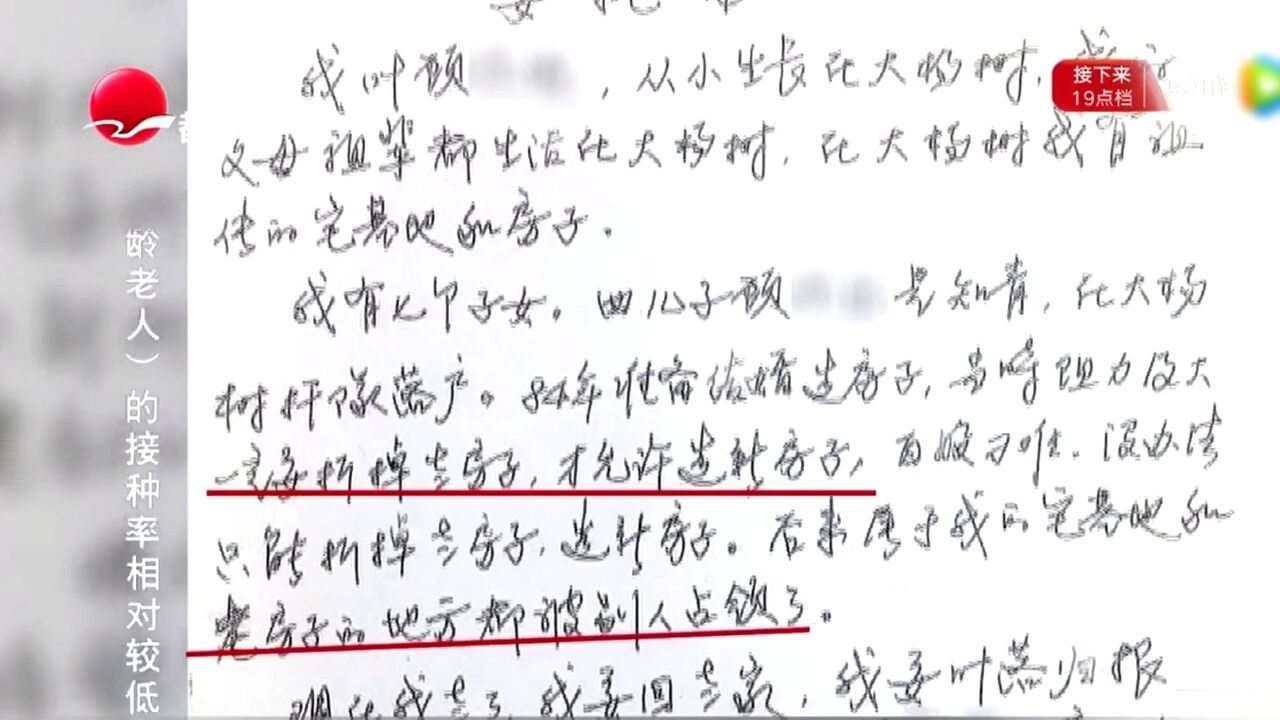 我叫顾，从小生长在大杨树，
父母祖辈都生活在大杨树，在大杨树我有祖
传的宅基地和房子。
我有七个子女。四儿子顾是知青，在大杨
树村队落户。84年准备结婚造房子，当时阻力很大
一定要拆掉老房子，才允许造新房子，百般刁难．没办法
只能拆掉老房子，造新房子。后来属于我的宅基地和
老房子的地方都被别人占领了。
现在我老了，我要回老家，我要叶落归根
接下来
19点档
龄老人）的接种率相对较低